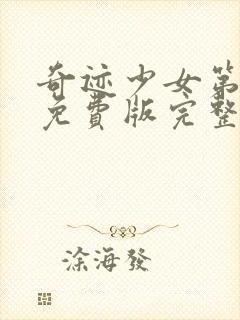 奇迹少女第
免費版完整
涂海發